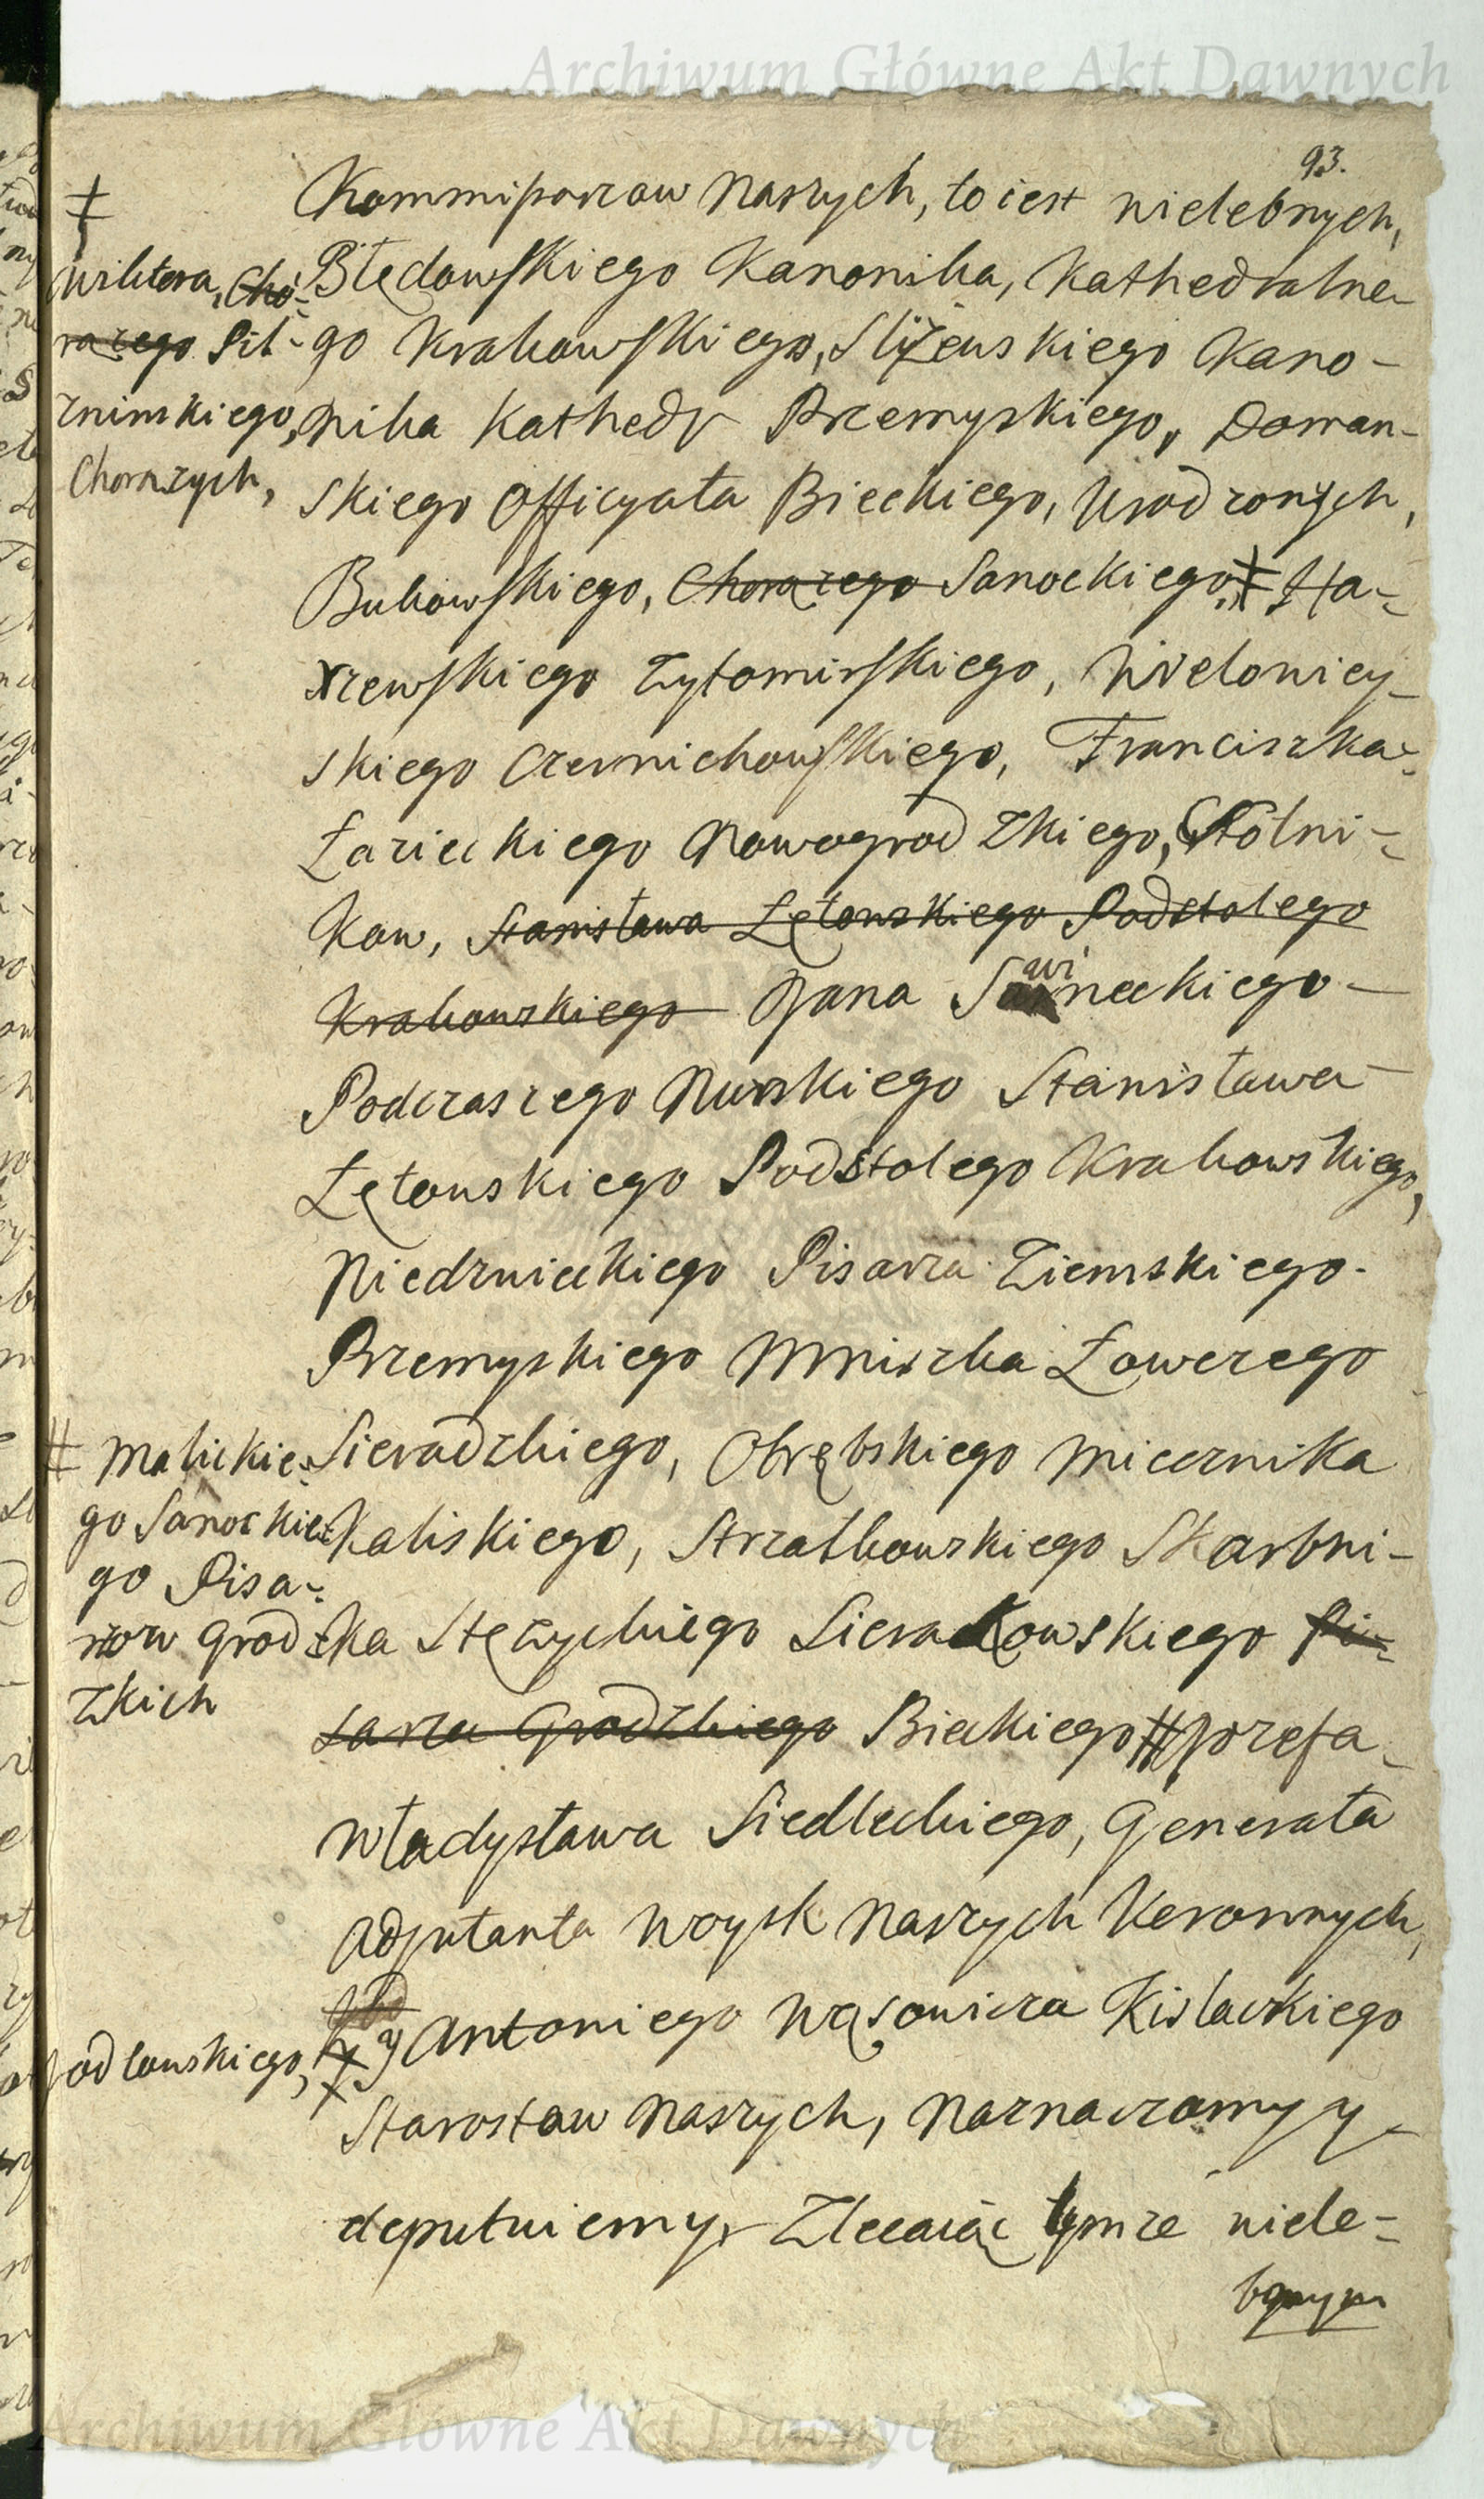 Archiwum Główne Akt Dawnych
93.
Kommissarzow Naszych, to iest wielebnych,
Błędowskiego Kanonika, Kathedralne
go Krakowskiego, Sliżenskiego Kano-
nika Kathedr Przemyskiego, Doman-
skiego Officyała Bieckiego, Urodzonych,
Bukowskiego, Chorązego Sanockiego, ‡ Ha-
rzewskiego Zytomirskiego, Wielowiey-
skiego Czernichowskiego, Franciszka
Łazieckiego Nowogrodzkiego, Stolni-
kow, Stanisława Łętowskiego Podstolego
Krakowskiego Jana Swineckiego
wi
Podczaszego Nurskiego Stanisława
Łętowskiego Podstolego Krakowskiego,
Niedzwieckiego Pisarza Ziemskiego
Przemyskiego Mniszka Łowczego
Sieradzkiego, Obrębskiego Miecznika
Kaliskiego, Strzałkowskiego Skarbni-
ka Stęzyckiego Sierakowskiego Pi-
sarza Grodzkiego Bieckiego # Jozefa
Władysława Siedleckiego, Generała
Adjutanta Woysk Naszych Koronnych,
‡ y Antoniego Wąsowicza Kislackiego
Starostow Naszych, Naznaczamy y
deputuiemy, Zlecaiąc tymze wiele-
bnym
‡
Wiktora, Cho-
rązego Pil-
zninskiego,
Chorązych,
# Malickie-
go Sanockie-
go Pisa-
rzow Grod-
zkich
Jodłowskiego,
Archiwum Główne Akt Dawnych